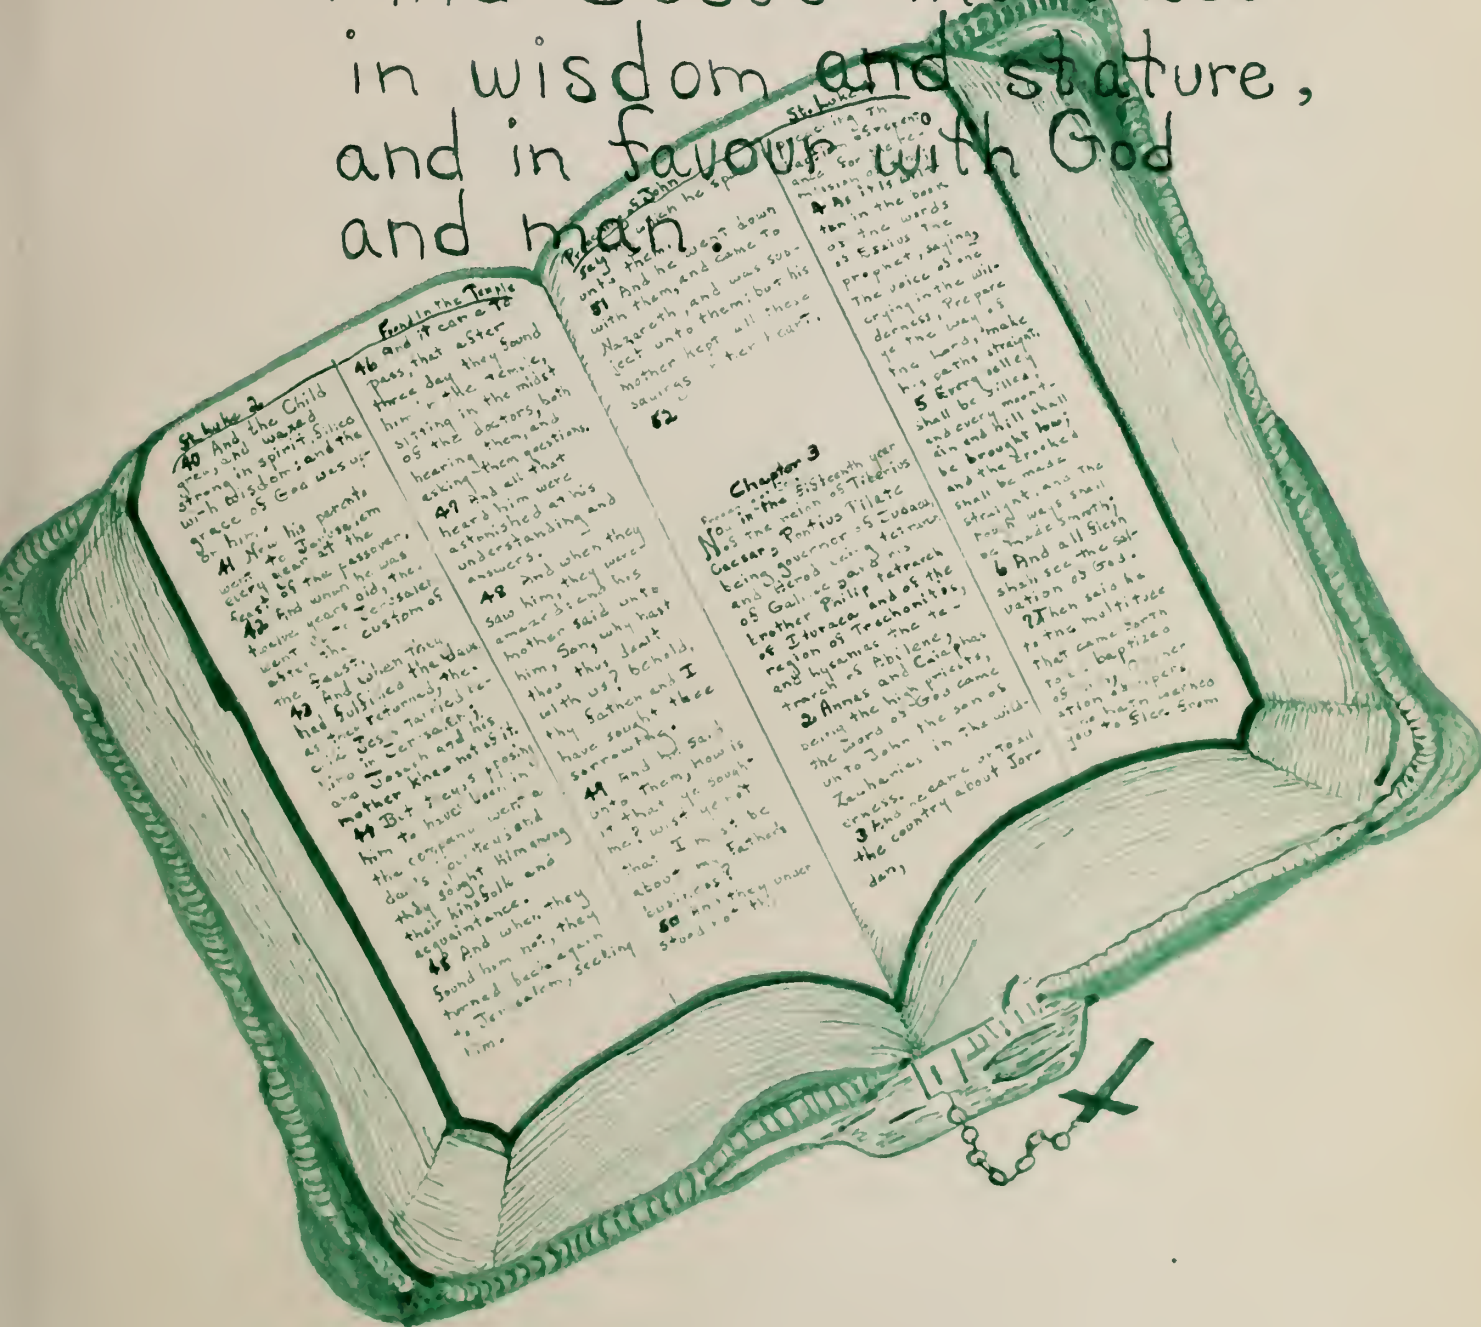 in wisdom and stature,
and in favour with God
and man.
St. Luke 2
40 And the Child
grew, and waxed
strong in spirit, filled
with wisdom: and the
grace of God was
on him.
41 Now his parents
went to Jerusalem
every year at the
feast of the passover.
42 And when he was
twelve years old, they
went
after the custom of
the feast.
43 And when they
had fulfilled the days
as they returned, the
tarried
in Jerusalem;
and Joseph and his
mother knew not of it.
44 But they,
him to have been in
the company went a
and
they sought him among
their kinsfolk and
acquaintance.
45 And when they
found him not, they
turned back again
to Jerusalem, seeking
him.
Found In the Temple
46 And it came to
pass, that after
three day they found
him in the temple,
sitting in the midst
of the doctors, both
hearing them, and
asking them questions.
47 And all that
heard him were
astonished at his
understanding and
answers.
48 And when they
saw him, they were
amazed: and his
mother said unto
him, Son, why hast
thou thus dealt
with us? behold,
thy father and I
have sought thee
sorrowing.
49 And he said
unto them, How is
it that ye sough-
me? wist ye not
that I must be
about my Father's
business?
50 And they under
stood not
Preaching of John
which he
unto them.
51 And he went down
with them, and came to
Nazareth, and was sub-
ject unto them: but his
mother kept all these
sayings her heart.
52
Chapter 3
Now in the fifteenth year
of the reign of Tiberius
Caesar, Pontius Pilate
being governor of Judaea,
and Herod being tetrarch
of Galilee and his
brother Philip tetrarch
of Ituraea and of the
region of Trachonitis,
and Lysanias the te-
trarch of Abilene,
2 Annas and Caiaphas
being the high priests,
the word of God came
unto John the son of
Zacharias in the wild-
erness.
3 And he came into all
the country about Jor-
dan,
St. Luke
of repent-
ance for the re-
mission of
4 As it is writ-
ten in the book
of the words
of Esaius the
prophet, saying,
The voice of one
crying in the wil-
derness, Prepare
ye the way of
the Lord, make
his paths straight.
5 Every valley
shall be filled,
and every mount-
ain and hill shall
be brought low;
and the crooked
shall be made
straight, and the
rough ways shall
be made smooth;
6 And all flesh
shall see the sal-
vation of God.
7 Then said he
to the multitude
that came forth
to be baptized
of
ation of vipers,
who hath warned
you to flee from